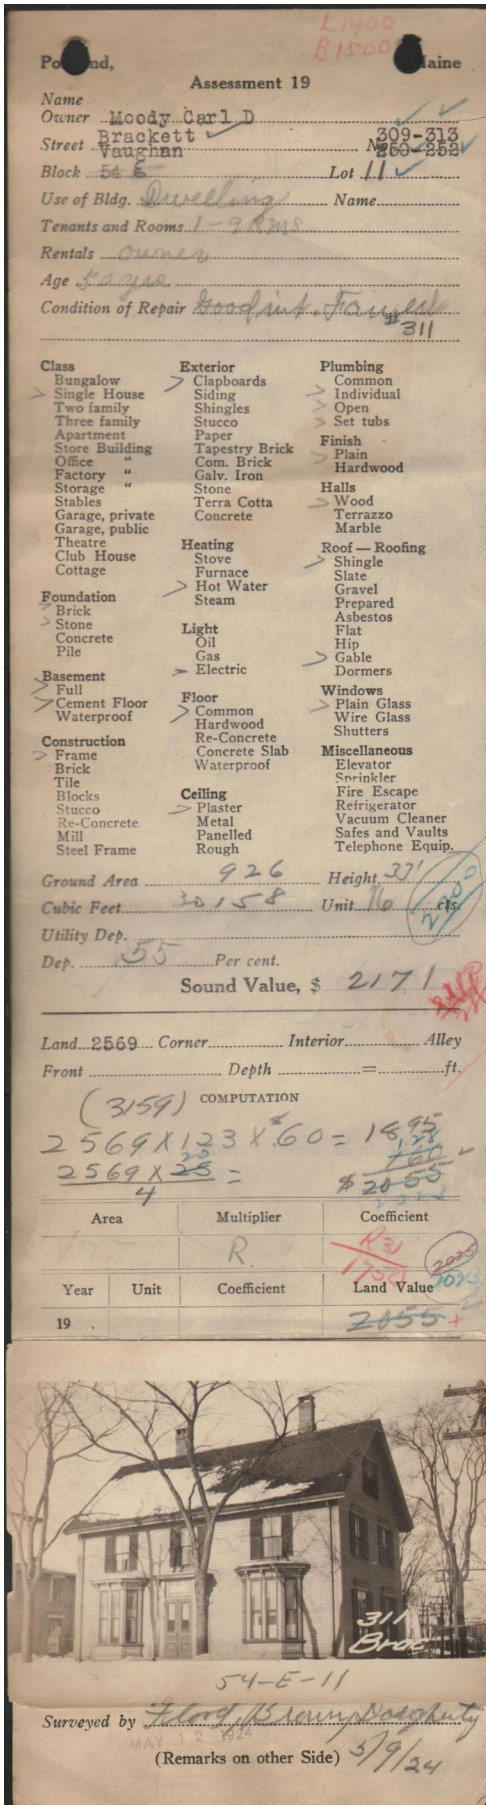 L1400
B1500
Portland, Maine
Assessment 19
Name
Owner Moody Carl D
Street Brackett No. 309-313
Vaughan 250-252
Block 54 E Lot 11
Use of Bldg. Dwelling Name
Tenants and Rooms 1-9 Rms
Rentals owner
Age 50 yrs
Condition of Repair Good int. Fair ext
#311
Class
Bungalow
> Single House
Two family
Three family
Apartment
Store Building
Office "
Factory "
Storage "
Stables
Garage, private
Garage, public
Theatre
Club House
Cottage
Foundation
> Brick
> Stone
Concrete
Pile
Basement
> Full
> Cement Floor
Waterproof
Construction
> Frame
Brick
Tile
Blocks
Stucco
Re-Concrete
Mill
Steel Frame
Exterior
> Clapboards
Siding
Shingles
Stucco
Paper
Tapestry Brick
Com. Brick
Galv. Iron
Stone
Terra Cotta
Concrete
Heating
Stove
Furnace
> Hot Water
Steam
Light
Oil
Gas
> Electric
Floor
> Common
Hardwood
Re-Concrete
Concrete Slab
Waterproof
Ceiling
> Plaster
Metal
Panelled
Rough
Plumbing
Common
> Individual
> Open
> Set tubs
Finish
> Plain
Hardwood
Halls
> Wood
Terrazzo
Marble
Roof — Roofing
> Shingle
Slate
Gravel
Prepared
Asbestos
Flat
Hip
> Gable
Dormers
Windows
> Plain Glass
Wire Glass
Shutters
Miscellaneous
Elevator
Sprinkler
Fire Escape
Refrigerator
Vacuum Cleaner
Safes and Vaults
Telephone Equip.
Ground Area 926 Height
Cubic Feet 30158 Unit 16 cts.
2200
Utility Dep.
Dep. 55 Per cent.
Sound Value, $ 2171
Land 2569 Corner Interior Alley
Front Depth = ft.
(3159) COMPUTATION
2569 X 123 X .60 = 1895
128
2569 X 25 = 160
4 $ 2055
Area Multiplier Coefficient
R. R31
1750
2025
Year Unit Coefficient Land Value
19 2055 +
311
Brac
54-E-11
Surveyed by Flood, Brown, Dougherty
MAY 12 1924
(Remarks on other Side) 5/9/24